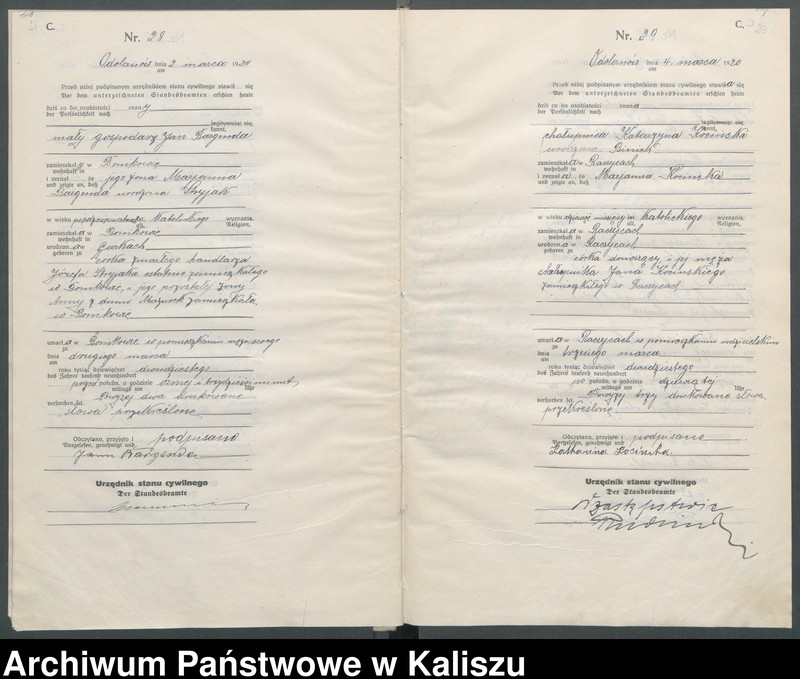 C.
Nr. 28
Odolanów dnia 2 marca 1920
am
Przed niżej podpisanym urzędnikiem stanu cywilnego stawił się
Vor dem unterzeichneten Standesbeamten erschien heute
dziś co do osobistości znany
der Persönlichkeit nach
legitymując się,
kannt,
mały gospodarz Jan Bargenda
zamieszkały w
wohnhaft in
i zeznał, że jego żona Marjanna
und zeigte an, daß
Bargenda urodzona Stryjak
w wieku lat, Katolickiego wyznania,
alt, Religion,
zamieszkała w
wohnhaft in
urodzona w
geboren zu
córka zmarłego handlarza
Józefa Stryjaka ostatnio zamieszkałego
w i jego pozostałej żony
Anny z domu Mazurek zamieszkała
w
umarła w w pomieszkaniu
zu
dnia drugiego marca
am
roku tysiąc dziewięćset dwudziestego
des Jahres tausend neunhundert
przed połudn. o godzinie ósmej i trzydzieści minut
mittags um Uhr
verstorben sei. Powyżej dwa drukowane
słowa przekreślone
Odczytano, przyjęto i podpisano
Vorgelesen, genehmigt und
Jann Bargenda
Urzędnik stanu cywilnego
Der Standesbeamte
C.
Nr. 29
Odolanów dnia 4 marca 1920
am
Przed niżej podpisanym urzędnikiem stanu cywilnego stawiła się
Vor dem unterzeichneten Standesbeamten erschien heute
dziś co do osobistości znana
der Persönlichkeit nach
legitymując się,
kannt,
chałupnica Katarzyna Kocińska
urodzona Biniek
zamieszkała w Raczycach
wohnhaft in
i zeznała, że Marjanna Kocińska
und zeigte an, daß
w wieku dziewięć miesięcy lat, Katolickiego wyznania,
alt, Religion,
zamieszkała w Raczycach
wohnhaft in
urodzona w Raczycach
geboren zu
córka donoszącej i jej męża
chałupnika Jana Kocińskiego
zamieszkałego w Raczycach
umarła w Raczycach w pomieszkaniu rodzicielskim
zu
dnia trzeciego marca
am
roku tysiąc dziewięćset dwudziestego
des Jahres tausend neunhundert
po połudn. o godzinie dziewiątej
mittags um Uhr
verstorben sei. Powyżej trzy drukowane słowa
przekreślone
Odczytano, przyjęto i podpisano
Vorgelesen, genehmigt und
Katharina Kocinska
Urzędnik stanu cywilnego
Der Standesbeamte
W zastępstwie
Archiwum Państwowe w Kaliszu